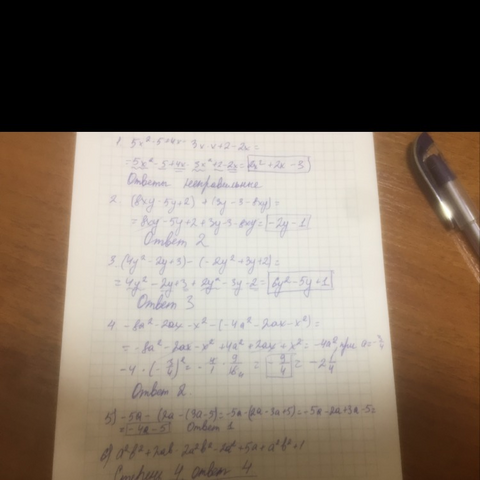 1. 5x² - 5 + 4x - 3x · x + 2 - 2x =
= 5x² - 5 + 4x - 3x² + 2 - 2x = 2x² + 2x - 3
Ответы неправильные
2. (8xy - 5y + 2) + (3y - 3 - 8xy) =
= 8xy - 5y + 2 + 3y - 3 - 8xy = -2y - 1
Ответ 2
3. (4y² - 2y + 3) - (-2y² + 3y + 2) =
= 4y² - 2y + 3 + 2y² - 3y - 2 = 6y² - 5y + 1
Ответ 3
4. -8a² - 2ax - x² - (-4a² - 2ax - x²) =
= -8a² - 2ax - x² + 4a² + 2ax + x² = -4a² при a = -3/4
-4 · (-3/4)² = -4/1 · 9/16 = -9/4 = -2 1/4
Ответ 2
5) -5a - (2a - (3a - 5)) = -5a - (2a - 3a + 5) = -5a - 2a + 3a - 5 =
= -4a - 5 Ответ 1
6) a²b² + 2ab - 2a²b² - 2a² + 5a + a²b² + 1
Степень 4 ответ 4